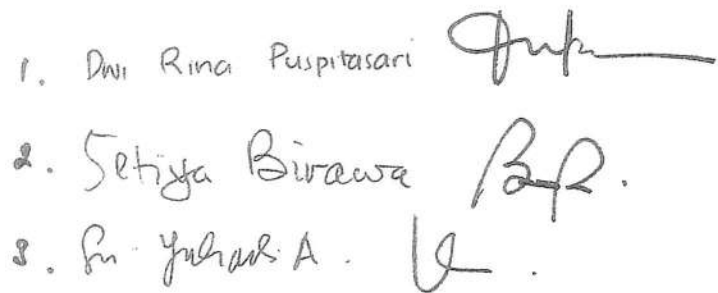 1. Dwi Rina Puspitasari
2. Setiya Birawa
3. Sri A.